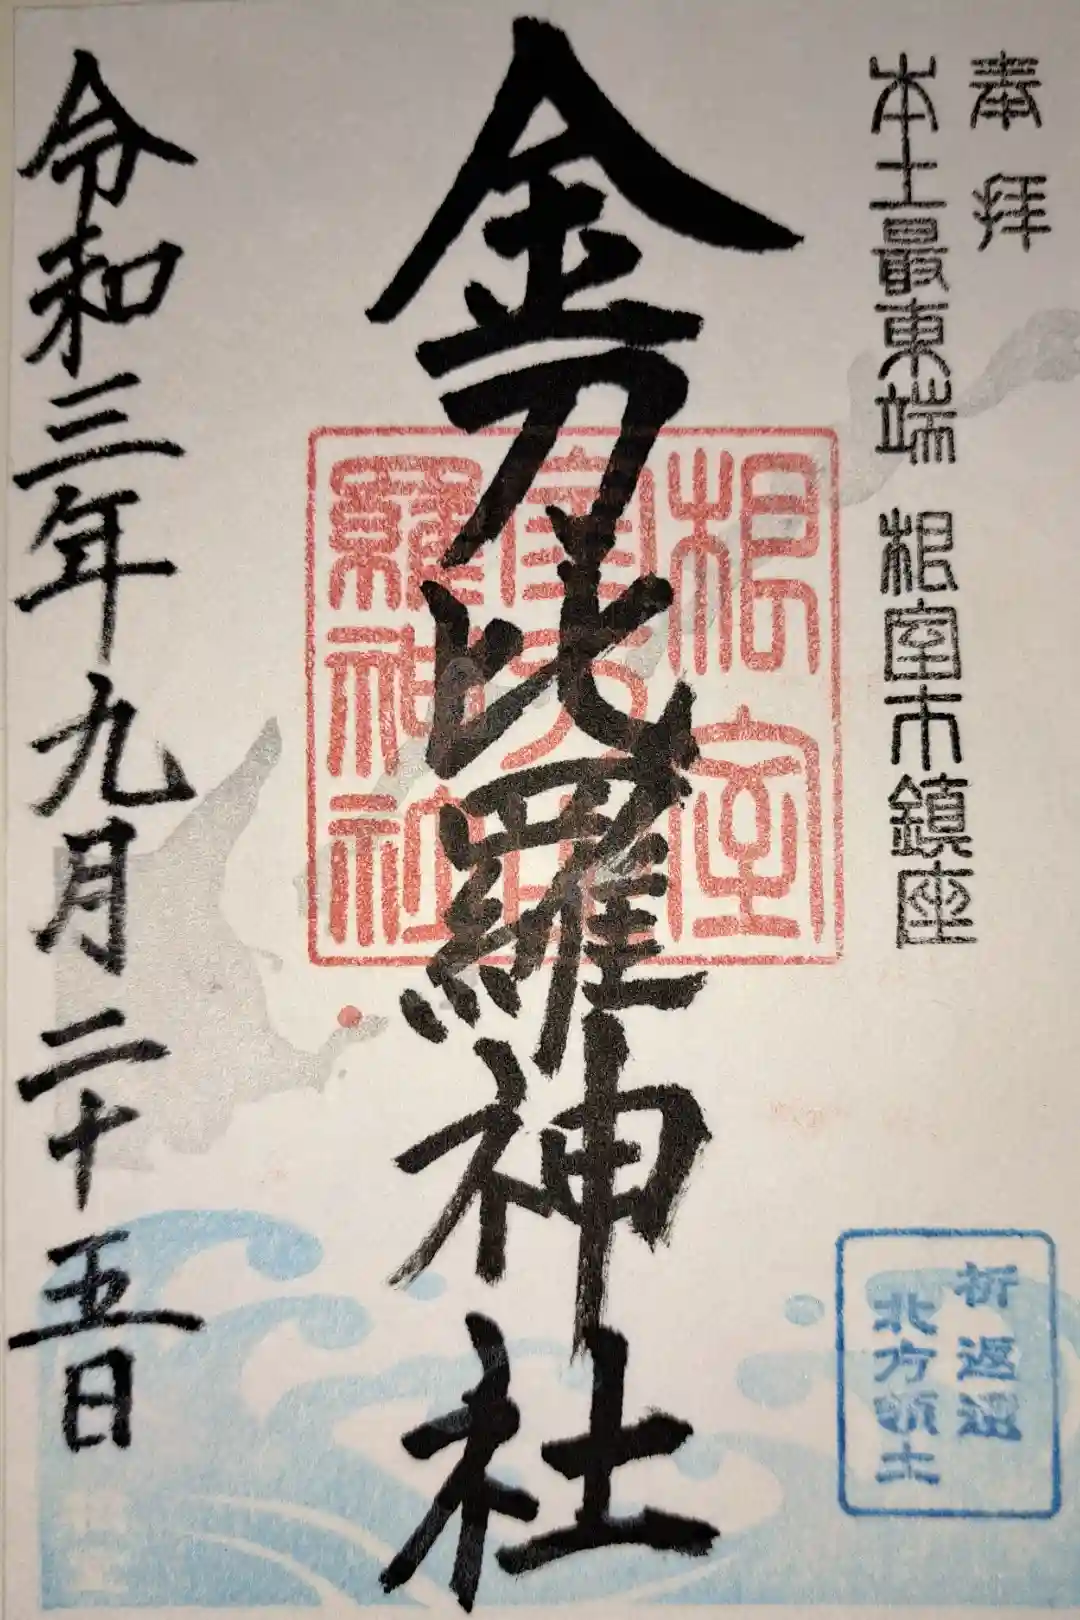 奉拝
本土最東端 根室市鎮座
金刀比羅神社
令和三年九月二十五日
根室
羅神社
祈 返還
北方領土